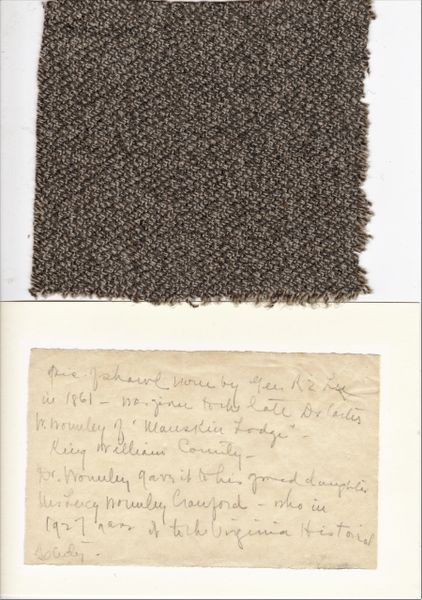 pce. of shawl worn by Gen R E Lee
in 1861 – was given to the late Dr Carter
W. Wormley of "Manskin Lodge" –
King William County –
Dr. Wormley gave it to his grand daughter
Miss Lucy Wormley Cranford – who in
1927 gave it to the Virginia Historical
Society –